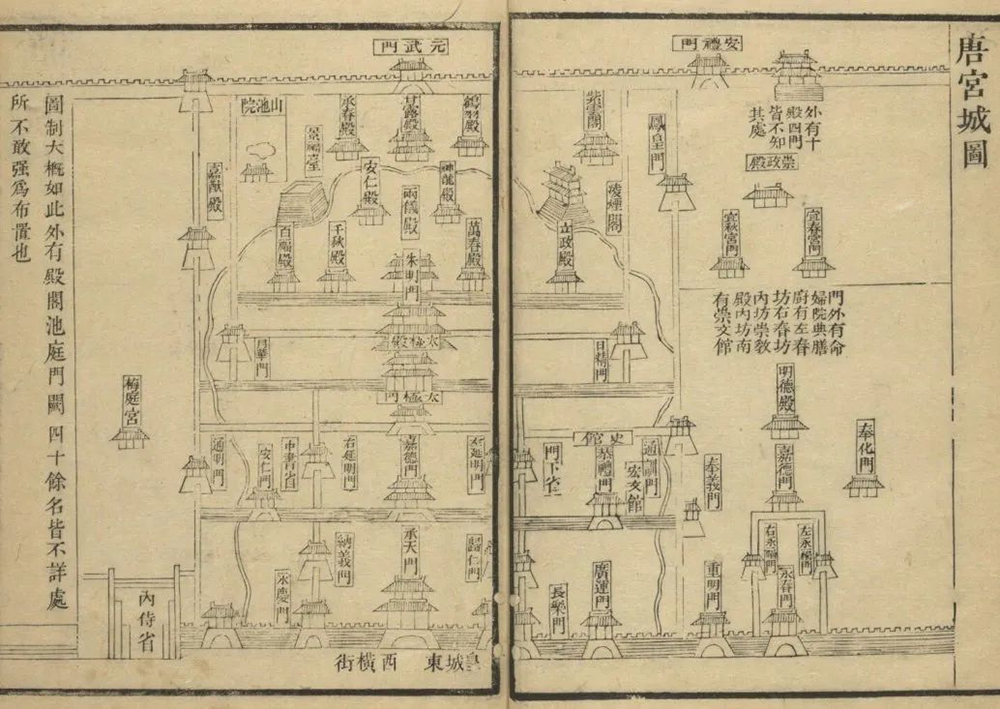 唐宮城圖
安禮門
外有十
殿四門
皆不知
其處
崇政殿
宜春宮門
宜秋宮門
鳳皇門
紫雲閣
凌煙閣
立政殿
門外有命
婦院典膳
廚有左春
坊右春坊
內坊崇教
殿內坊南
有崇文館
日精門
明德殿
奉化門
嘉德門
左永福門
右永福門
永春門
重明門
奉義門
通訓門
史館
宏文館
恭禮門
門下省
廣運門
長樂門
元武門
鶴羽殿
甘露殿
承春殿
山池院
景福臺
神龍殿
安仁殿
兩儀殿
嘉猷殿
萬春殿
千秋殿
百福殿
朱明門
太極殿
月華門
太極門
左延明門
嘉德門
右延明門
中書省
安仁門
通明門
梅庭宮
歸仁門
承天門
納義門
永慶門
內侍省
皇城東
西橫街
圖制大概如此外有殿閣池庭門闕四十餘名皆不詳處
所不敢强爲布置也